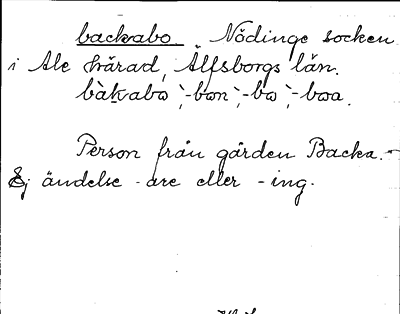 backabo Nödinge socken
i Ale härad, Älfsborgs län.
bàkabo, -bon, -bo, -boa.
Person från gården Backa. -
Ej ändelse -are eller -ing.